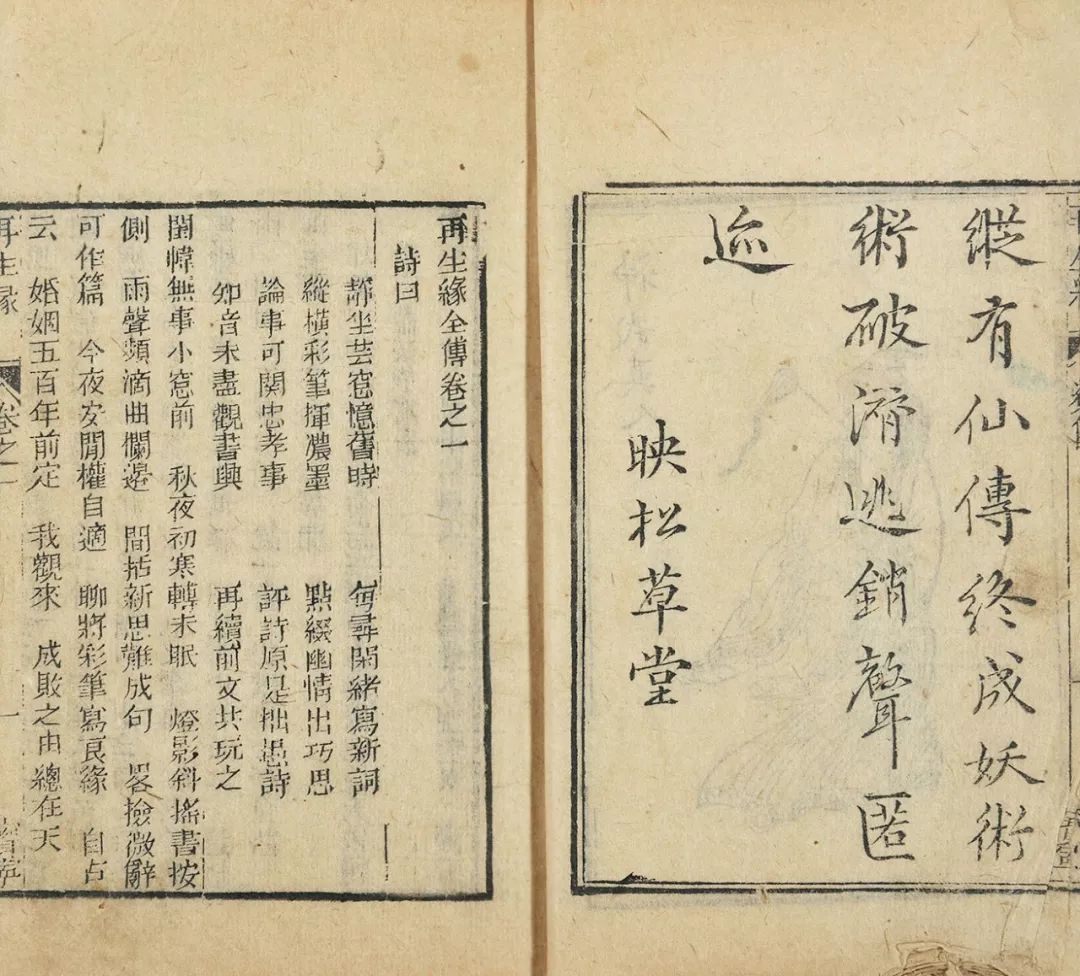 縱有仙傳終成妖術
術破潛逃銷聲匿
迹
映松草堂
再生緣全傳卷之一
詩曰
靜坐芸窓憶舊時　每尋閑緒寫新詞
縱橫彩筆揮濃墨　點綴幽情出巧思
論事可関忠孝事　評詩原是拙愚詩
知音未盡觀書興　再續前文共玩之
閨幃無事小窓前　秋夜初寒轉未眠　燈影斜搖書按
側　雨聲頻滴曲欄邊　間拈新思難成句　畧撿微辭
可作篇　今夜安閒權自適　聊將彩筆寫良緣　自占
云　婚姻五百年前定　我觀來　成敗之由總在天
再生緣　卷之一　一